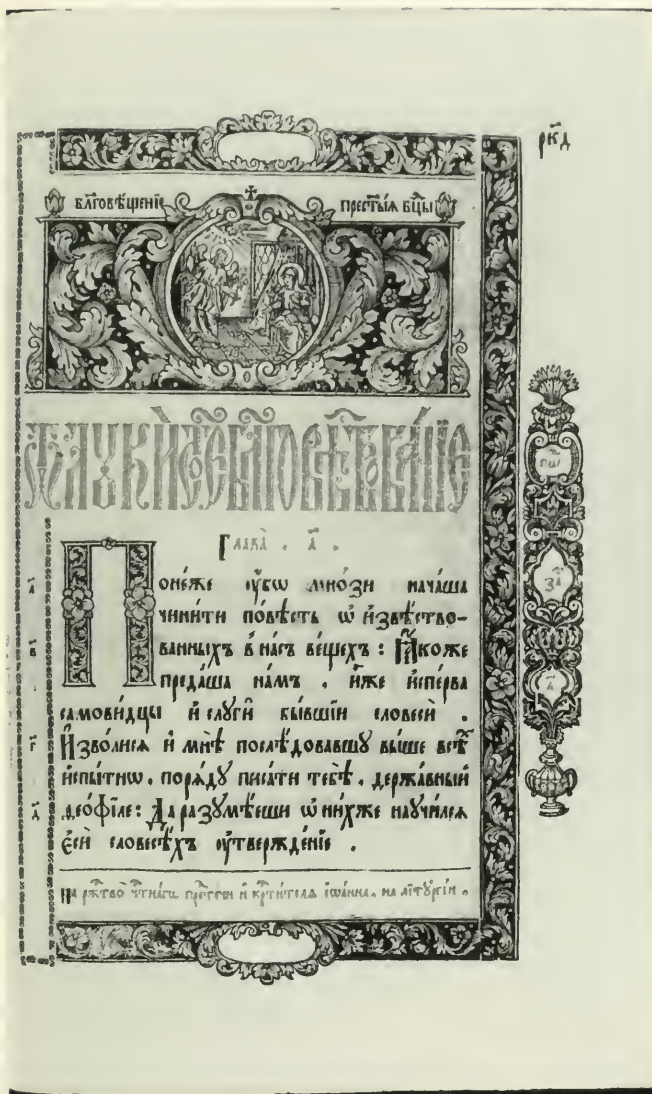 рк҃д
бл҃говѣщенїе прест҃ыѧ бц҃ы
Ѿ лꙋкѝ ст҃о́е бл҃говѣствова́нїе
Глава̀ . а҃ .
а҃ Поне́же ᲂу҆́бѡ мно́зи нача́ша
чини́ти по́вѣсть ѡ҆ и҆звѣ́ство-
в҃ ванныхъ в̾ на́съ ве́щехъ : Ꙗ҆́коже
преда́ша на́мъ . и҆̀же и҆спе́рва
самови́дцы и҆ слꙋги̂ бы́вшїи словесѐ .
г҃ И҆зво́лисѧ и҆ мнѣ̀ послѣ́довавшꙋ вы́ше всѧ̑
и҆спы́тнѡ . порѧ́дꙋ писа́ти тебѣ̀ . держа́вный
д҃ ѳео́фїле : Да разꙋмѣ́еши ѡ҆ ни́хже наꙋчи́лсѧ
є҆сѝ словесѣ́хъ ᲂу҆твержде́нїе .
на ржⷭ҇тво̀ чⷭ҇тна́гѡ прⷣте́чи и҆ крⷭ҇ти́телѧ і҆ѡа́нна . на лїтꙋргі́и .
за҃
а҃